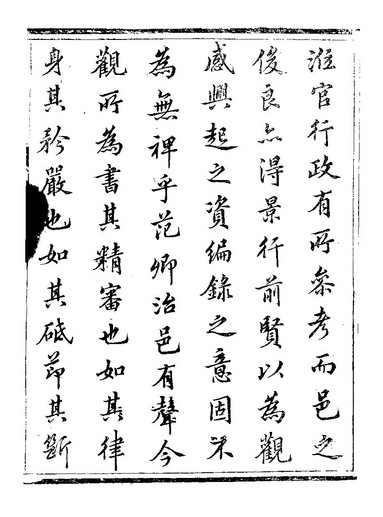 涖官行政有所參考而邑之
俊良亦得景行前賢以為觀
感興起之資編錄之意固未
為無裨乎范卿治邑有聲今
觀所為書其精審也如其律
身其矜嚴也如其砥節其斷